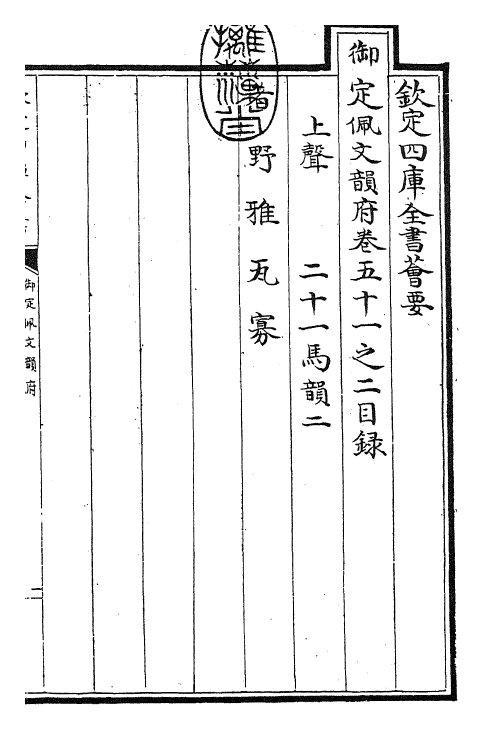 欽定四庫全書薈要
御定佩文韻府卷五十一之二目録
上聲 二十一馬韻二
野雅瓦寡
御定佩文韻府